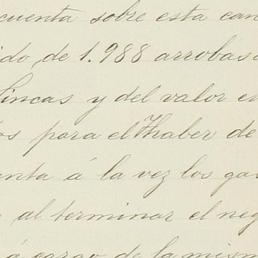 cuenta sobre esta can
ido de 1.988 arrobas
fincas y del valor en
os para el Haber de
enta á la vez los ga
al terminar el neg
á cargo de la mism